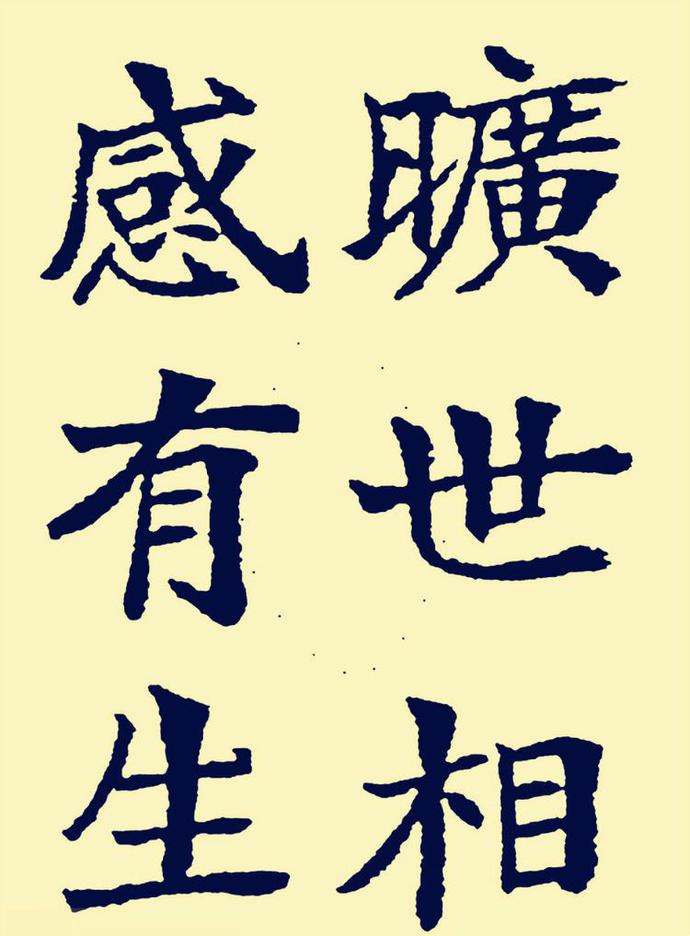 曠世相
感有生